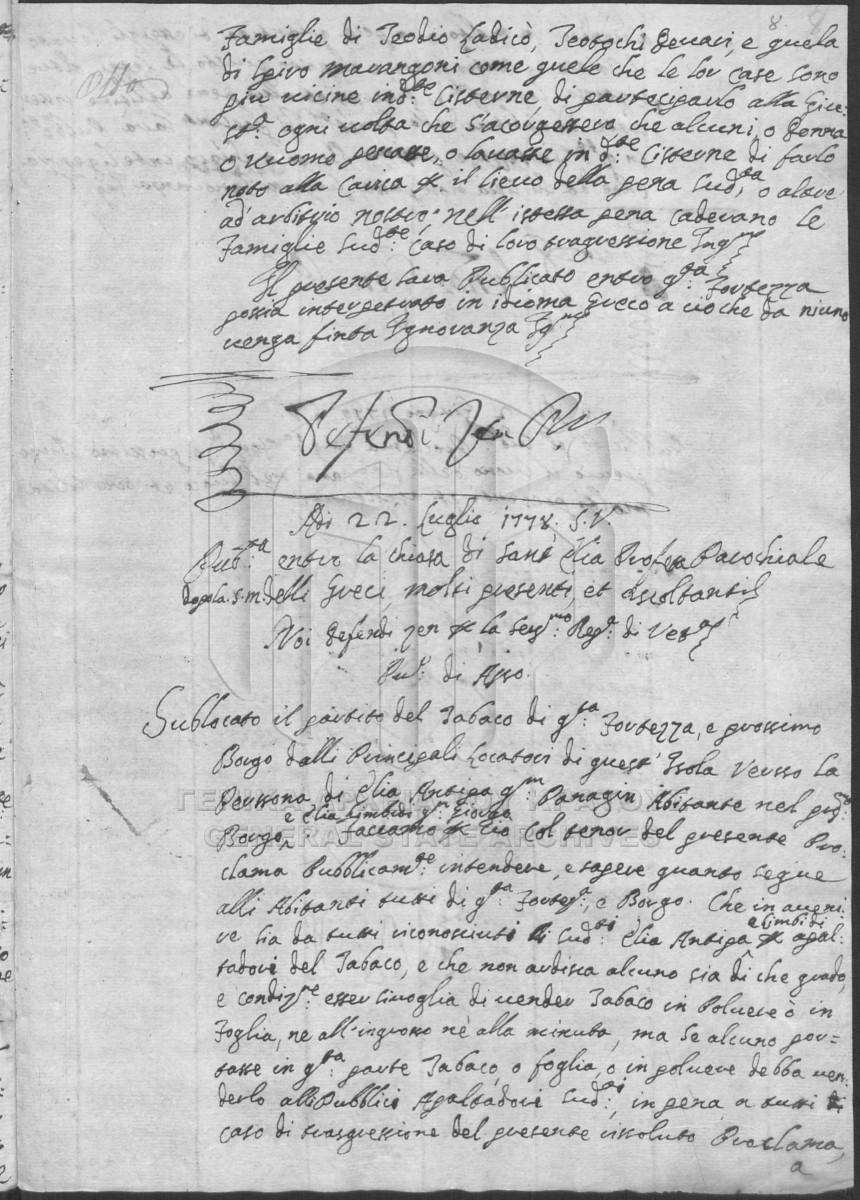 8.
Famiglie di Teodio Ladicò, Teotochi Gerari, e quela
di Spiro Marangoni come quele che le lor case sono
piu vicine ind:te Cisterne, di partecipario alla Giu:
st:a ogni volta che s'acorgessero che alcuni, o Donna
o vuomo pescasse, o lavasse in d:te Cisterne di farlo
noto alla Carica il lievo della pena sud:ta o altre
ad'arbitrio nostro; nell'istessa pena caderano le
Famiglie sud:te caso di loro trasgressione
Il presente sara Publicato entro q:ta Fortezza
possia interpetrato in idioma Greco a cio che da niuno
venga finta Ignoranza
Defendi Zen
Adi 22. Luglio 1778. S.V.
Pub:ta entro la chiesa di Sant'Elia Profeta Parochiale
dopo la s.m. delli Greci, molti presenti, et ascoltanti
Noi Defendi Zen la Ser:mo Reg: di Ven:a
Pro: di Asso.
Sublocato il partito del Tabaco di q:ta Fortezza, e prossimo
Borgo dalli Principali Locatori di quest'Isola Versso la
Perssona di Elia Antipa q:m Panagin Abitante nel
ΓΕΝΙΚΑ ΑΡΧΕΙΑ ΤΟΥ ΚΡΑΤΟΥΣ
e Elia Limbidi q:m Giorgo
Borgo, Facciamo Cio Col tenor del presente Pro:
GENERAL STATE ARCHIVES
clama Pubblicam:te intendere, e sapere quanto segue
alli Abitanti tutti di q:ta Fortez:, e Borgo. Che in aveni:
e Limbidi
re sia da tutti riconosciuti li sud:ti Elia Antipa apal:
tadori del Tabaco, e che non ardisca alcuno sia di che grado,
e condiz:ne esser sivoglia di vender Tabaco in Polvere o in
Foglia, ne all'ingrosso ne alla minuta, ma se alcuno por=
tasse in q:ta parte Tabaco, o foglia, o in polvere debba ven:
derlo alli Pubblici Apaltadori sud:ti, in pena a tutti
caso di trasgressione del presente rissoluto Proclama,
a